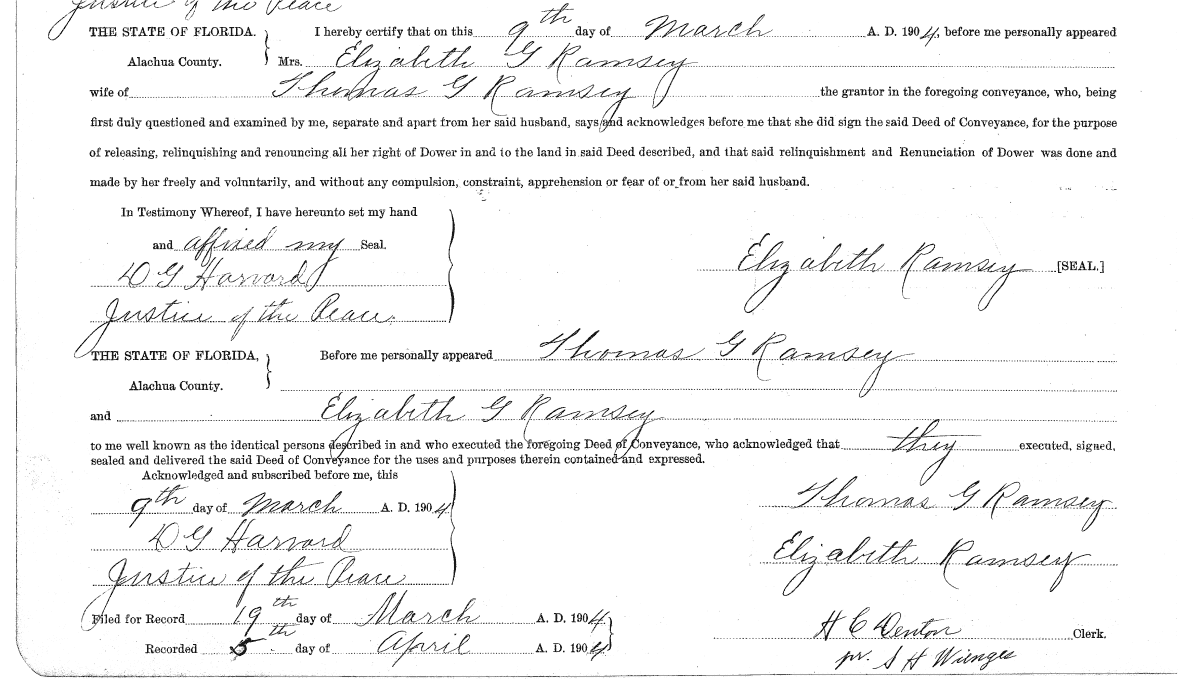 Justice of the Peace
THE STATE OF FLORIDA. } I hereby certify that on this 9th day of March A. D. 1904, before me personally appeared
Alachua County. Mrs. Elizabeth G Ramsey
wife of Thomas G Ramsey the grantor in the foregoing conveyance, who, being
first duly questioned and examined by me, separate and apart from her said husband, says and acknowledges before me that she did sign the said Deed of Conveyance, for the purpose
of releasing, relinquishing and renouncing all her right of Dower in and to the land in said Deed described, and that said relinquishment and Renunciation of Dower was done and
made by her freely and voluntarily, and without any compulsion, constraint, apprehension or fear of or from her said husband.
In Testimony Whereof, I have hereunto set my hand
and affixed my Seal.
D G Harvard
Elizabeth Ramsey [SEAL.]
Justice of the Peace.
THE STATE OF FLORIDA, } Before me personally appeared Thomas G Ramsey
Alachua County.
and Elizabeth G Ramsey
to me well known as the identical persons described in and who executed the foregoing Deed of Conveyance, who acknowledged that they executed, signed,
sealed and delivered the said Deed of Conveyance for the uses and purposes therein contained and expressed.
Acknowledged and subscribed before me, this
9th day of March A. D. 1904
Thomas G Ramsey
D G Harvard
Elizabeth Ramsey
Justice of the Peace
Filed for Record 19th day of March A. D. 1904
H C Denton Clerk.
Recorded 5th day of April A. D. 1904
pr. S H Wienges